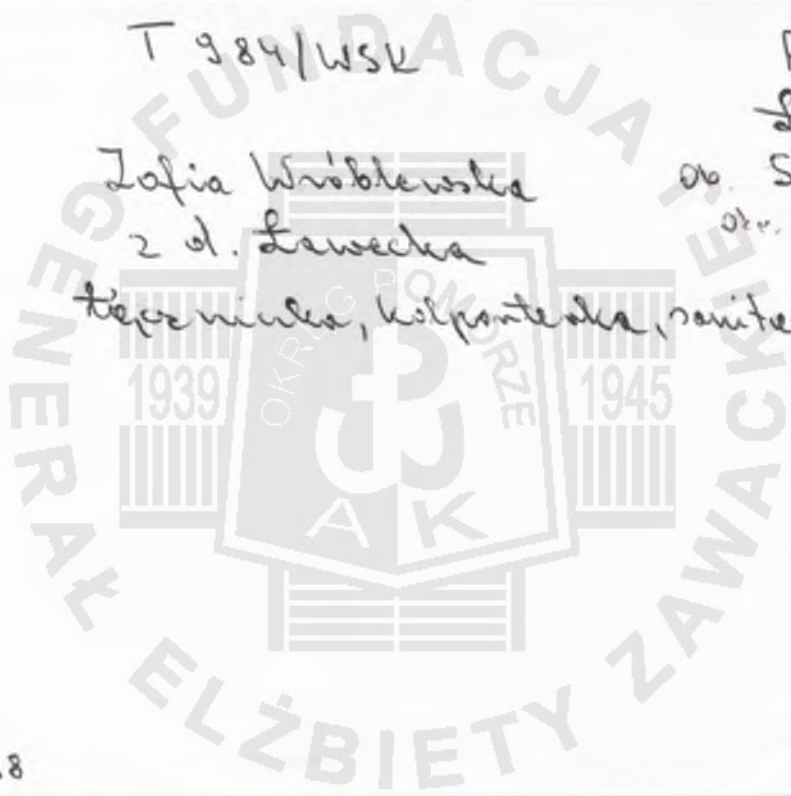 T 984/WSK
Zofia Wróblewska
z d. Ławecka
ob. S
okr.
łączniczka, kolporterka, sanita
.8
FUNDACJA GENERAŁ ELŻBIETY ZAWACKIEJ
OKRĘG POMORZE
1939
1945
A K